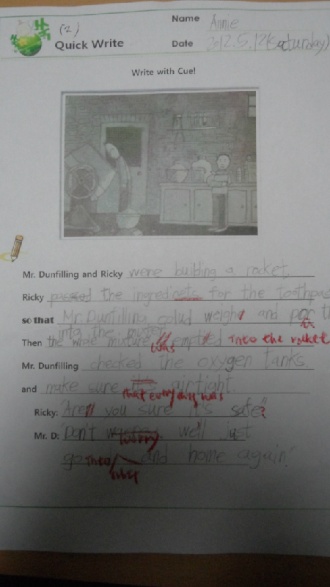 (2)
Quick Write
Name Annie
Date 2012.5.12(Saturday)
Write with Cue!
Mr. Dunfilling and Ricky were building a rocket.
Ricky passed the ingredients for the toothpaste
so that Mr. Dunfilling could weigh and
into the
Then the mixture was emptied into the rocket
Mr. Dunfilling checked the oxygen tanks
and make sure that everything was airtight.
Ricky: "Are you sure it's safe?
Mr. D. "Don't worry we'll just
go and home again."